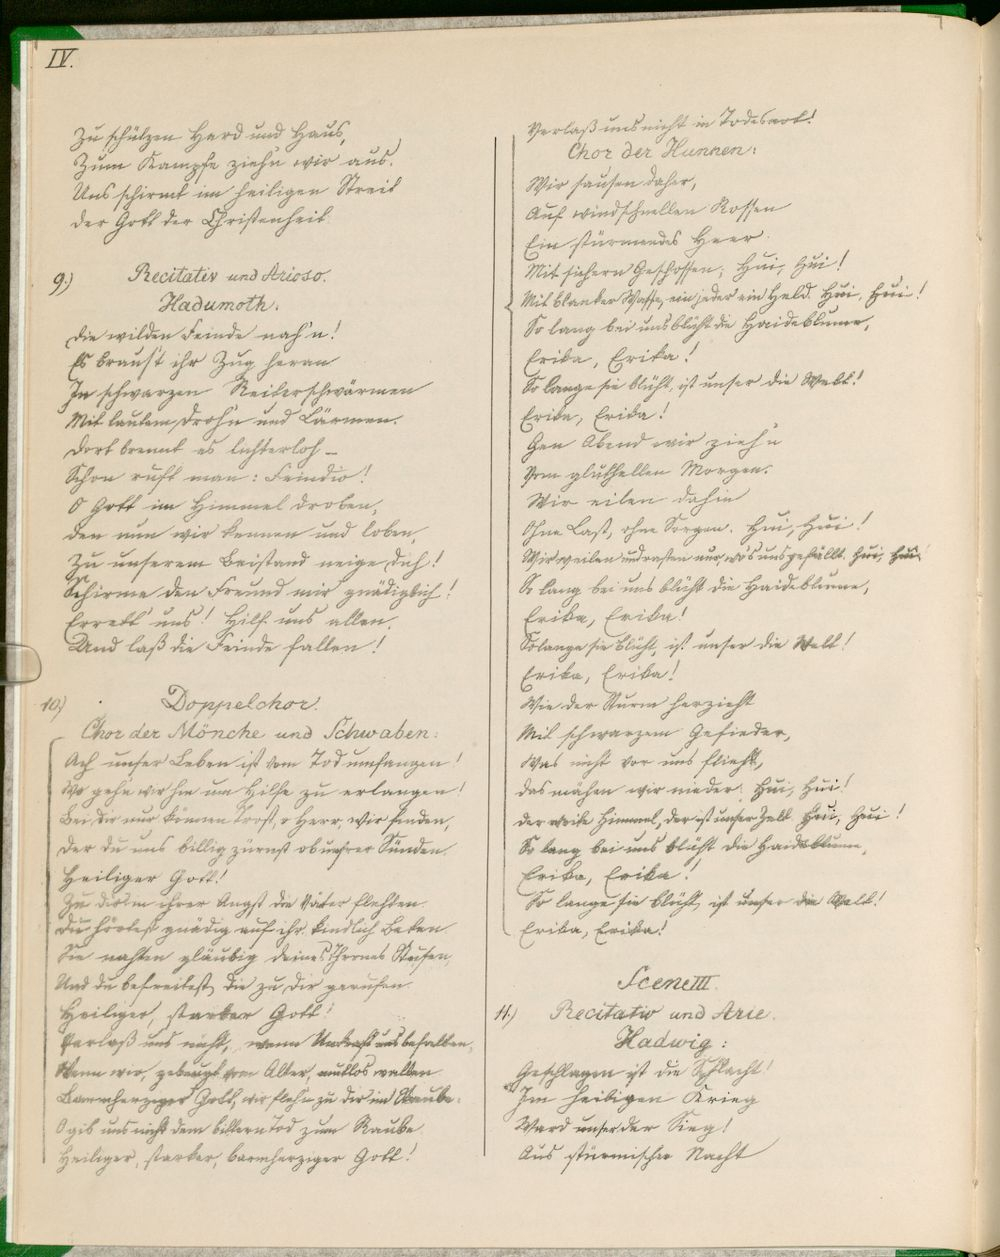 IV.
Zu schützen Herd und Haus,
Zum Kampfe zieh'n wir aus.
Uns schirmt im heiligen Streit
der Gott der Christenheit.
9.) Recitativ und Arioso.
Hadumoth.
Die wilden Feinde nah'n!
Es braus't ihr Zug heran
In schwarzen Reiterschwärmen
Mit lautem Droh'n und Lärmen.
Dort brennt es lichterloh –
Schon ruft man: Feindio!
O Gott im Himmel droben,
Den nun wir kennen und loben,
Zu unserem Beistand neige dich!
Schirme den Freund mir gnädiglich!
Errett' uns! Hilf uns allen,
Und laß die Feinde fallen!
10.) Doppelchor.
Chor der Mönche und Schwaben:
Ach unser Leben ist vom Tod umfangen!
Wo geh'n wir hin um Hilfe zu erlangen!
Bei dir nur können Trost, o Herr, wir finden,
Der du uns billig zürnst ob unsrer Sünden.
Heiliger Gott!
Zu dir in ihrer Angst die Väter flehten.
Du hörtest gnädig auf ihr kindlich Beten.
Sie nahten gläubig deines Thrones Stufen,
Und du befreitest, die zu dir gerufen.
Heiliger, starker Gott!
Verlaß uns nicht, wenn Unkraft uns befallen,
Wenn wir, gebeugt vom Alter, mutlos wallen.
Barmherziger Gott, wir fleh'n zu dir im Staube.
O gib uns nicht dem bittern Tod zum Raube.
Heiliger, starker, barmherziger Gott!
Verlaß uns nicht in Todesnot!
Chor der Hunnen:
Wir sausen daher,
Auf windschnellen Rossen
Ein stürmendes Heer.
Mit sichern Geschossen; Hui, Hui!
Mit blanker Waffe, ein jeder ein Held. Hui, Hui!
So lang bei uns blüht die Haideblume,
Erika, Erika!
So lange sie blüht, ist unser die Welt!
Erika, Erika!
Gen Abend wir zieh'n
Vom gluthellen Morgen.
Wir eilen dahin
Ohne Last, ohne Sorgen. Hui, Hui!
Wir weilen und rasten nur, wo's uns gefällt. Hui, Hui!
So lang bei uns blüht die Haideblume,
Erika, Erika!
Solange sie blüht, ist unser die Welt!
Erika, Erika!
Wie der Sturm herzieht
Mit schwarzem Gefieder,
Was nicht vor uns flieht,
das mähen wir nieder. Hui, Hui!
der weite Himmel, der ist unser Zelt. Hui, Hui!
So lang bei uns blüht die Haideblume,
Erika, Erika!
So lange sie blüht, ist unser die Welt!
Erika, Erika!
Scene III.
11.) Recitativ und Arie.
Hadwig:
Geschlagen ist die Schlacht!
Im heiligen Krieg
Ward unser der Sieg!
Aus stürmischer Nacht